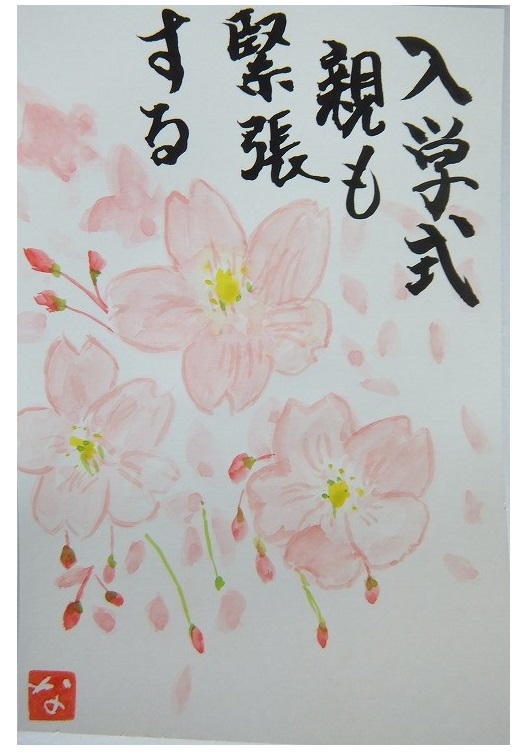 入学式
親も
緊張
する
な